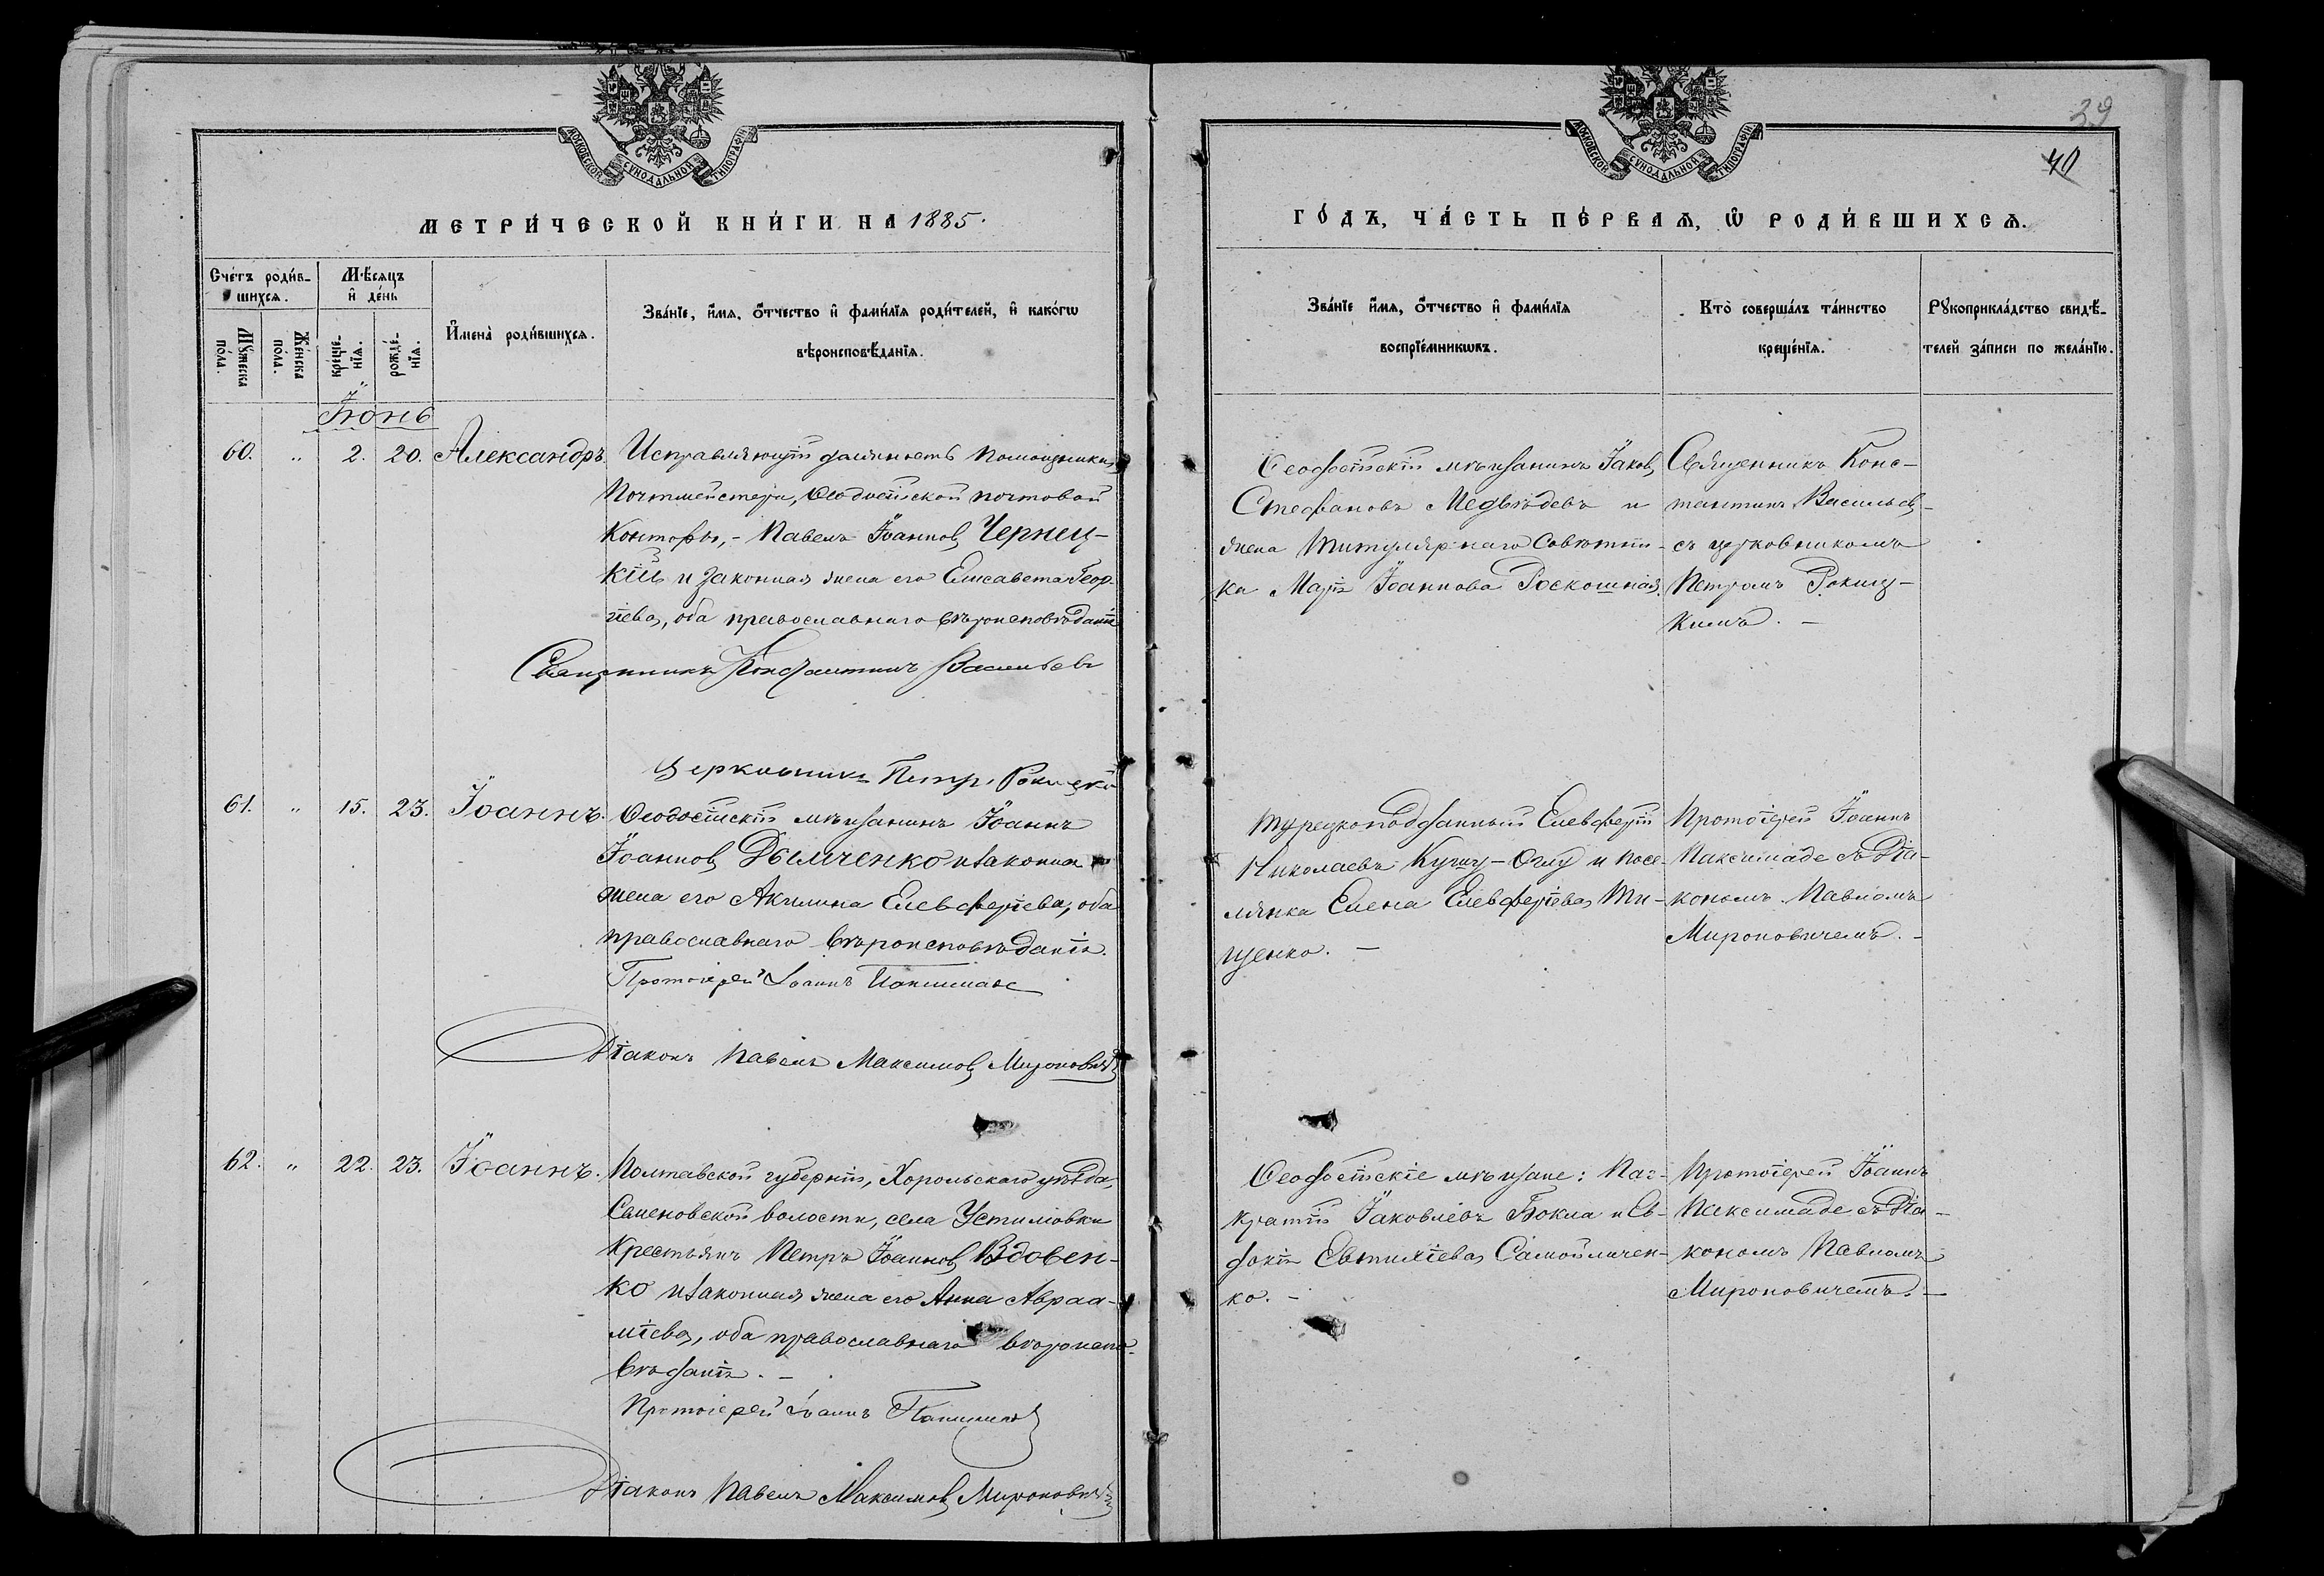 МОСКОВСКОЙ СУНОДАЛЬНОЙ ТИПОГРАФІИ
МЕТРИ́ЧЕСКОЙ КНИ́ГИ НА 1885.
Сче́тъ роди́в-
шихся.
Мѣ́сяцъ
и҆ де́нь
Му́жеска
по́ла.
Же́нска
по́ла.
креще́-
нїѧ.
рожде́-
нїѧ.
И҆мена̀ роди́вшихсѧ.
Зва́нїе, и҆́мѧ, ѻ҆́тчество и҆ фами́лїѧ роди́телей, и҆ како́гѡ
вѣроисповѣ́данїѧ.
Іюнь
60. „ 2. 20. Александръ.
Исправляющій должность помощника
Почтмейстера, Ѳеодосійской почтовой
Конторы,- Павелъ Іоанновъ Чернец-
кій и законная жена его Елисавета Геор-
гіева, оба православнаго вѣроисповѣданія
Священникъ Константинъ Васильевъ
Церковникъ Петръ Рокицкій
61. „ 15. 23. Іоаннъ.
Ѳеодосійскій мѣщанинъ Іоаннъ
Іоанновъ Дымченко и законная
жена его Акилина Елевферіева, оба
православнаго вѣроисповѣданія.
Протоіерей Іоаннъ
Діаконъ Павелъ Максимовъ Мироновичъ
62. „ 22. 23. Іоаннъ.
Полтавской губерніи, Хорольскаго уѣзда,
Семеновской волости, села Устимовки
крестьянъ Петръ Іоанновъ Вдовен-
ко и законная жена его Анна Авраа-
міева, оба православнаго вѣроиспо-
вѣданія. -
Протоіерей Іоаннъ
Діаконъ Павелъ Максимовъ Мироновичъ
39
40
МОСКОВСКОЙ СУНОДАЛЬНОЙ ТИПОГРАФІИ
ГО́ДЪ, ЧА́СТЬ ПЕ́РВАѦ, Ѡ҆ РОДИ́ВШИХСѦ.
Зва́нїе и҆́мѧ, ѻ҆́тчество и҆ фами́лїѧ
воспрїе́мникѡвъ.
Кто̀ соверша́лъ та́инство
креще́нїѧ.
Рꙋкоприкла́дство свидѣ́-
телей за́писи по жела́нїю.
Ѳеодосійскій мѣщанинъ Іаковъ
Стефановъ Медвѣдевъ и
жена Титулярнаго Совѣтни-
ка Марія Іоаннова Роскошная.
Священникъ Конс-
тантинъ Васильевъ
съ церковникомъ
Петромъ Рокиц-
кимъ. -
Турецкоподданный Елевферій
Николаевъ Кушу-Оглу и посе-
лянка Елена Елевферіева Ти-
щенко. -
Протоіерей Іоаннъ
Паксимаде съ Діа-
кономъ Павломъ
Мироновичемъ. -
Ѳеодосійскіе мѣщане: Пан-
кратій Іаковлевъ Бокла и Ев-
докія Евтихіева Самойличен-
ко. -
Протоіерей Іоаннъ
Паксимаде съ Діа-
кономъ Павломъ
Мироновичемъ. -